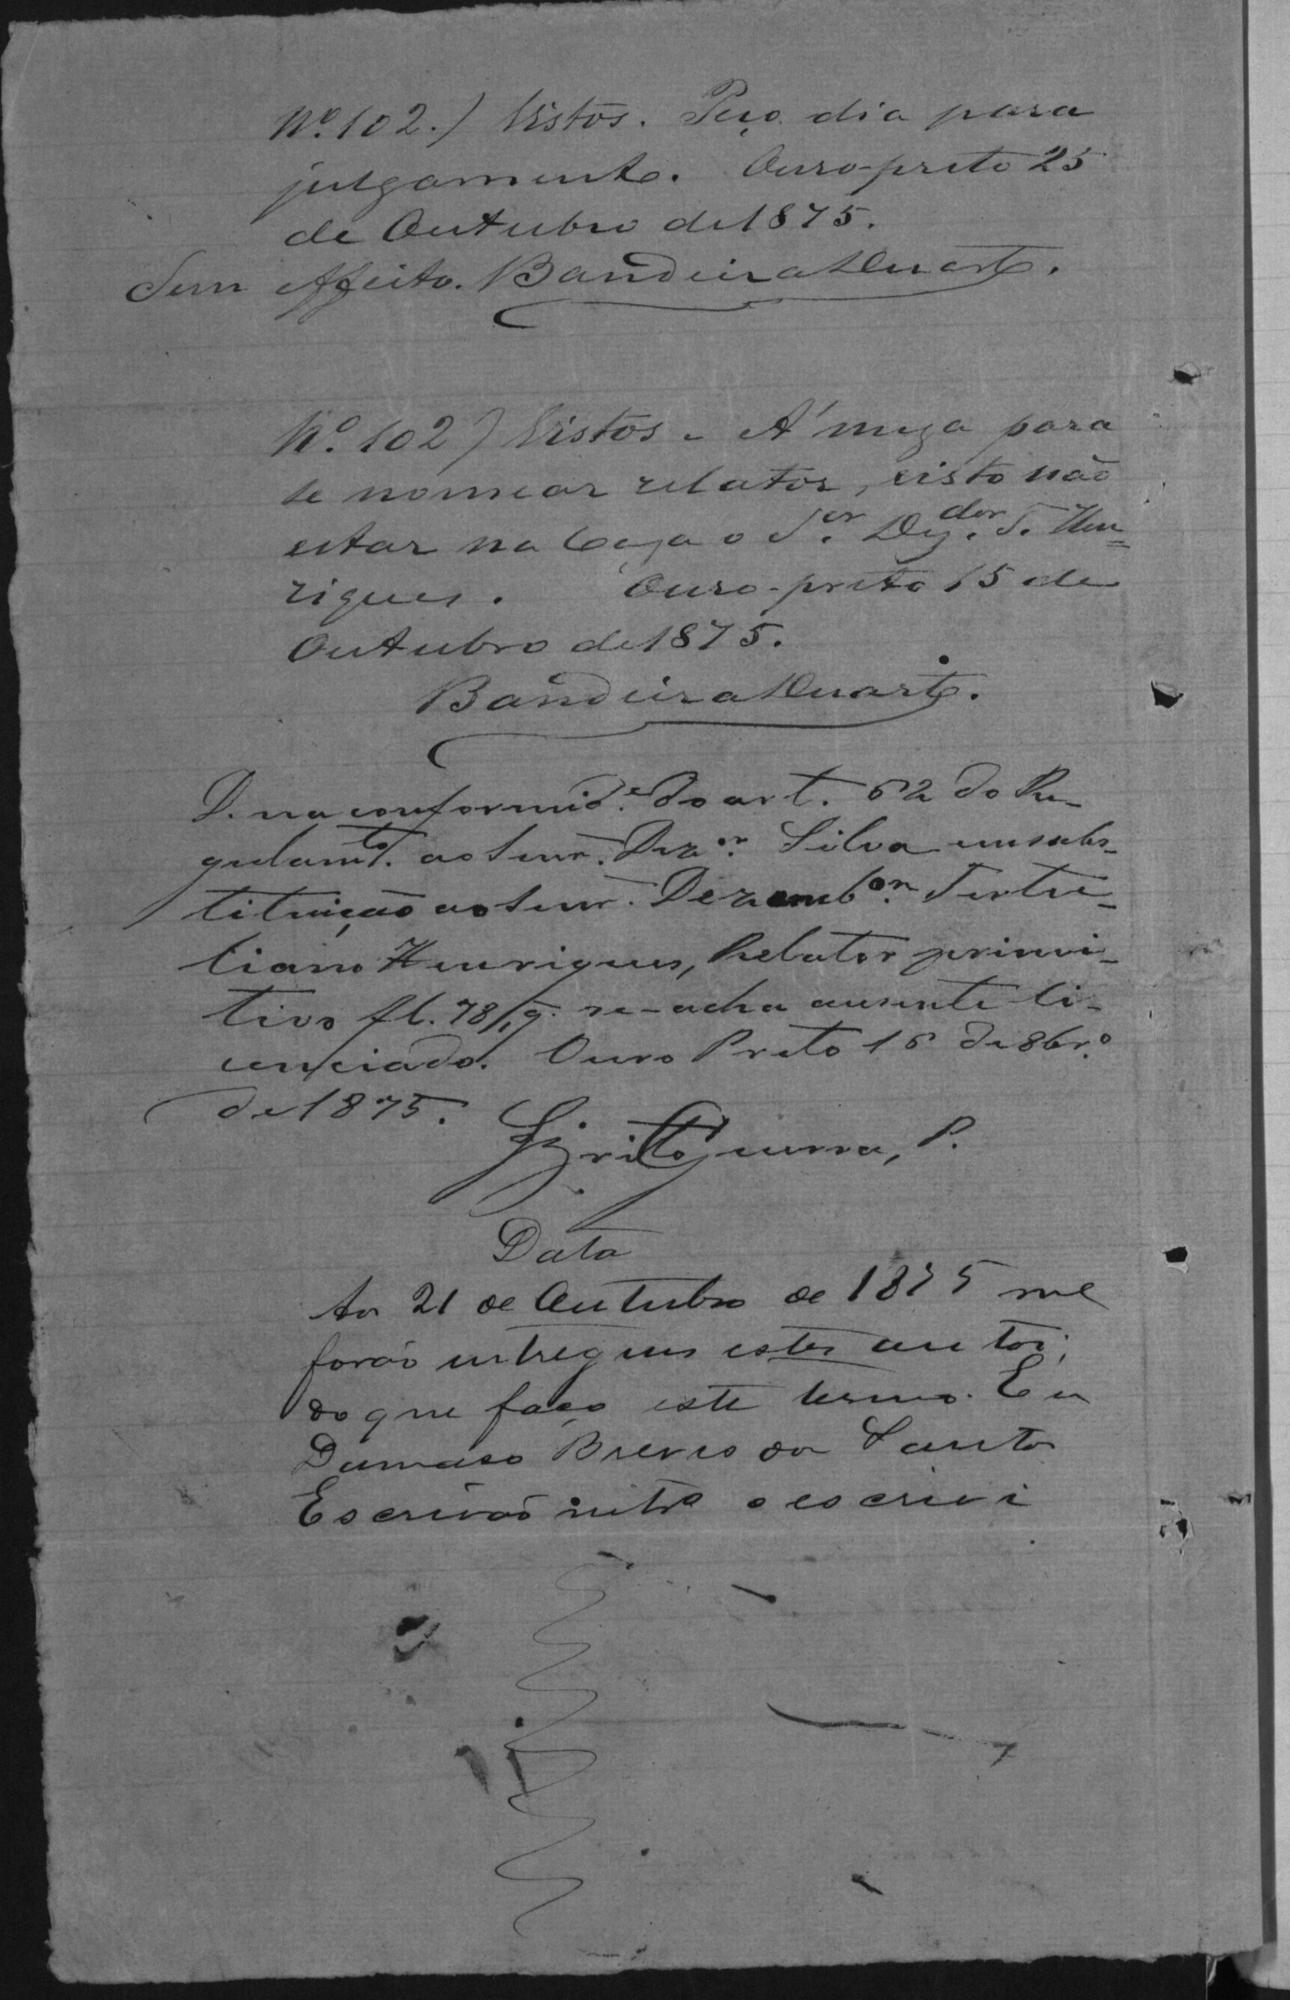 Nº. 102.) Vistos. Peço dia para
julgamento. Ouro-preto 25
de Outubro de 1875.
Sem effeito. Bandeira Duarte.
Nº. 102) Vistos. A' meza para
se nomear relator, visto não
estar na Caza o Sr. Dez.dor T. Hen=
riques. Ouro-preto 15 de
Outubro de 1875.
Bandeira Duarte.
D. na conformid.e do art. 62 do Re-
gulam.to ao Senr. Dez.or Silva em subs-
tituição ao Senr. Dezemb.or Tertu-
liano Henriques, Relator primi-
tivo fl. 78, q. se-acha ausente li-
cenciado. Ouro Preto 16 de 8br.o
de 1875.
Brito Guerra, P.
Data
Aos 21 de Outubro de 1875 me
forão entregues estes autos;
do que faço este termo. Eu
Damaso Brevis dos Santos
Escrivão o escrevi